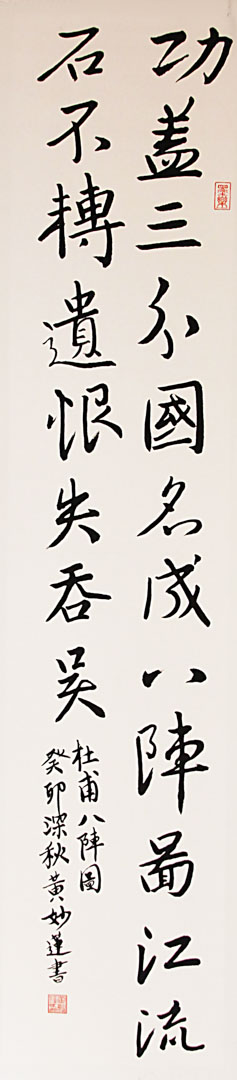 功蓋三分國名成八陣圖江流
石不轉遺恨失吞吳
杜甫八陣圖
癸卯深秋黃妙蓮書